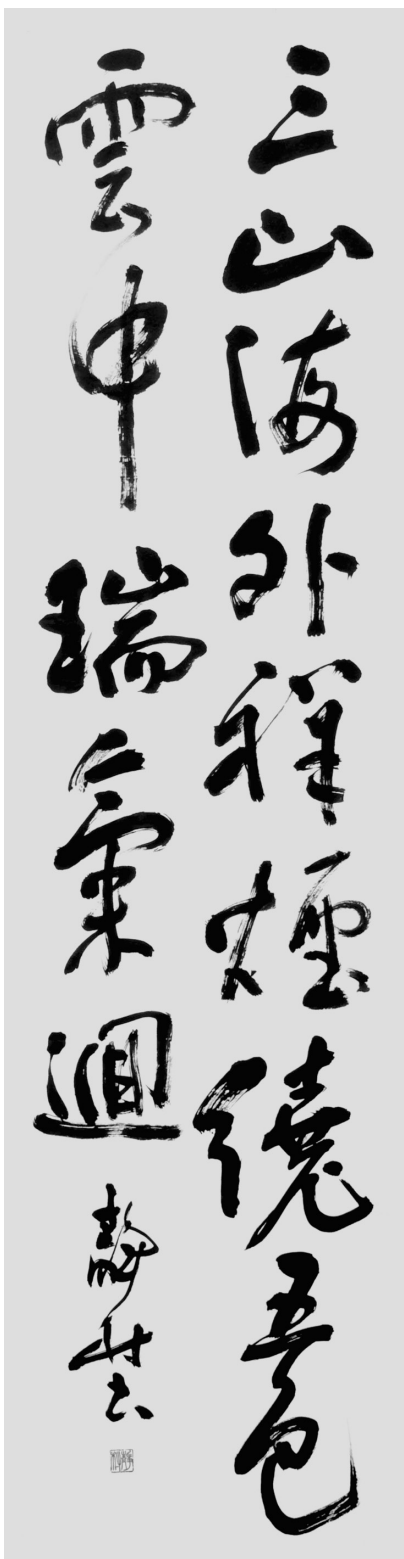 三山海外祥煙繞五色
雲中瑞氣迴
靜